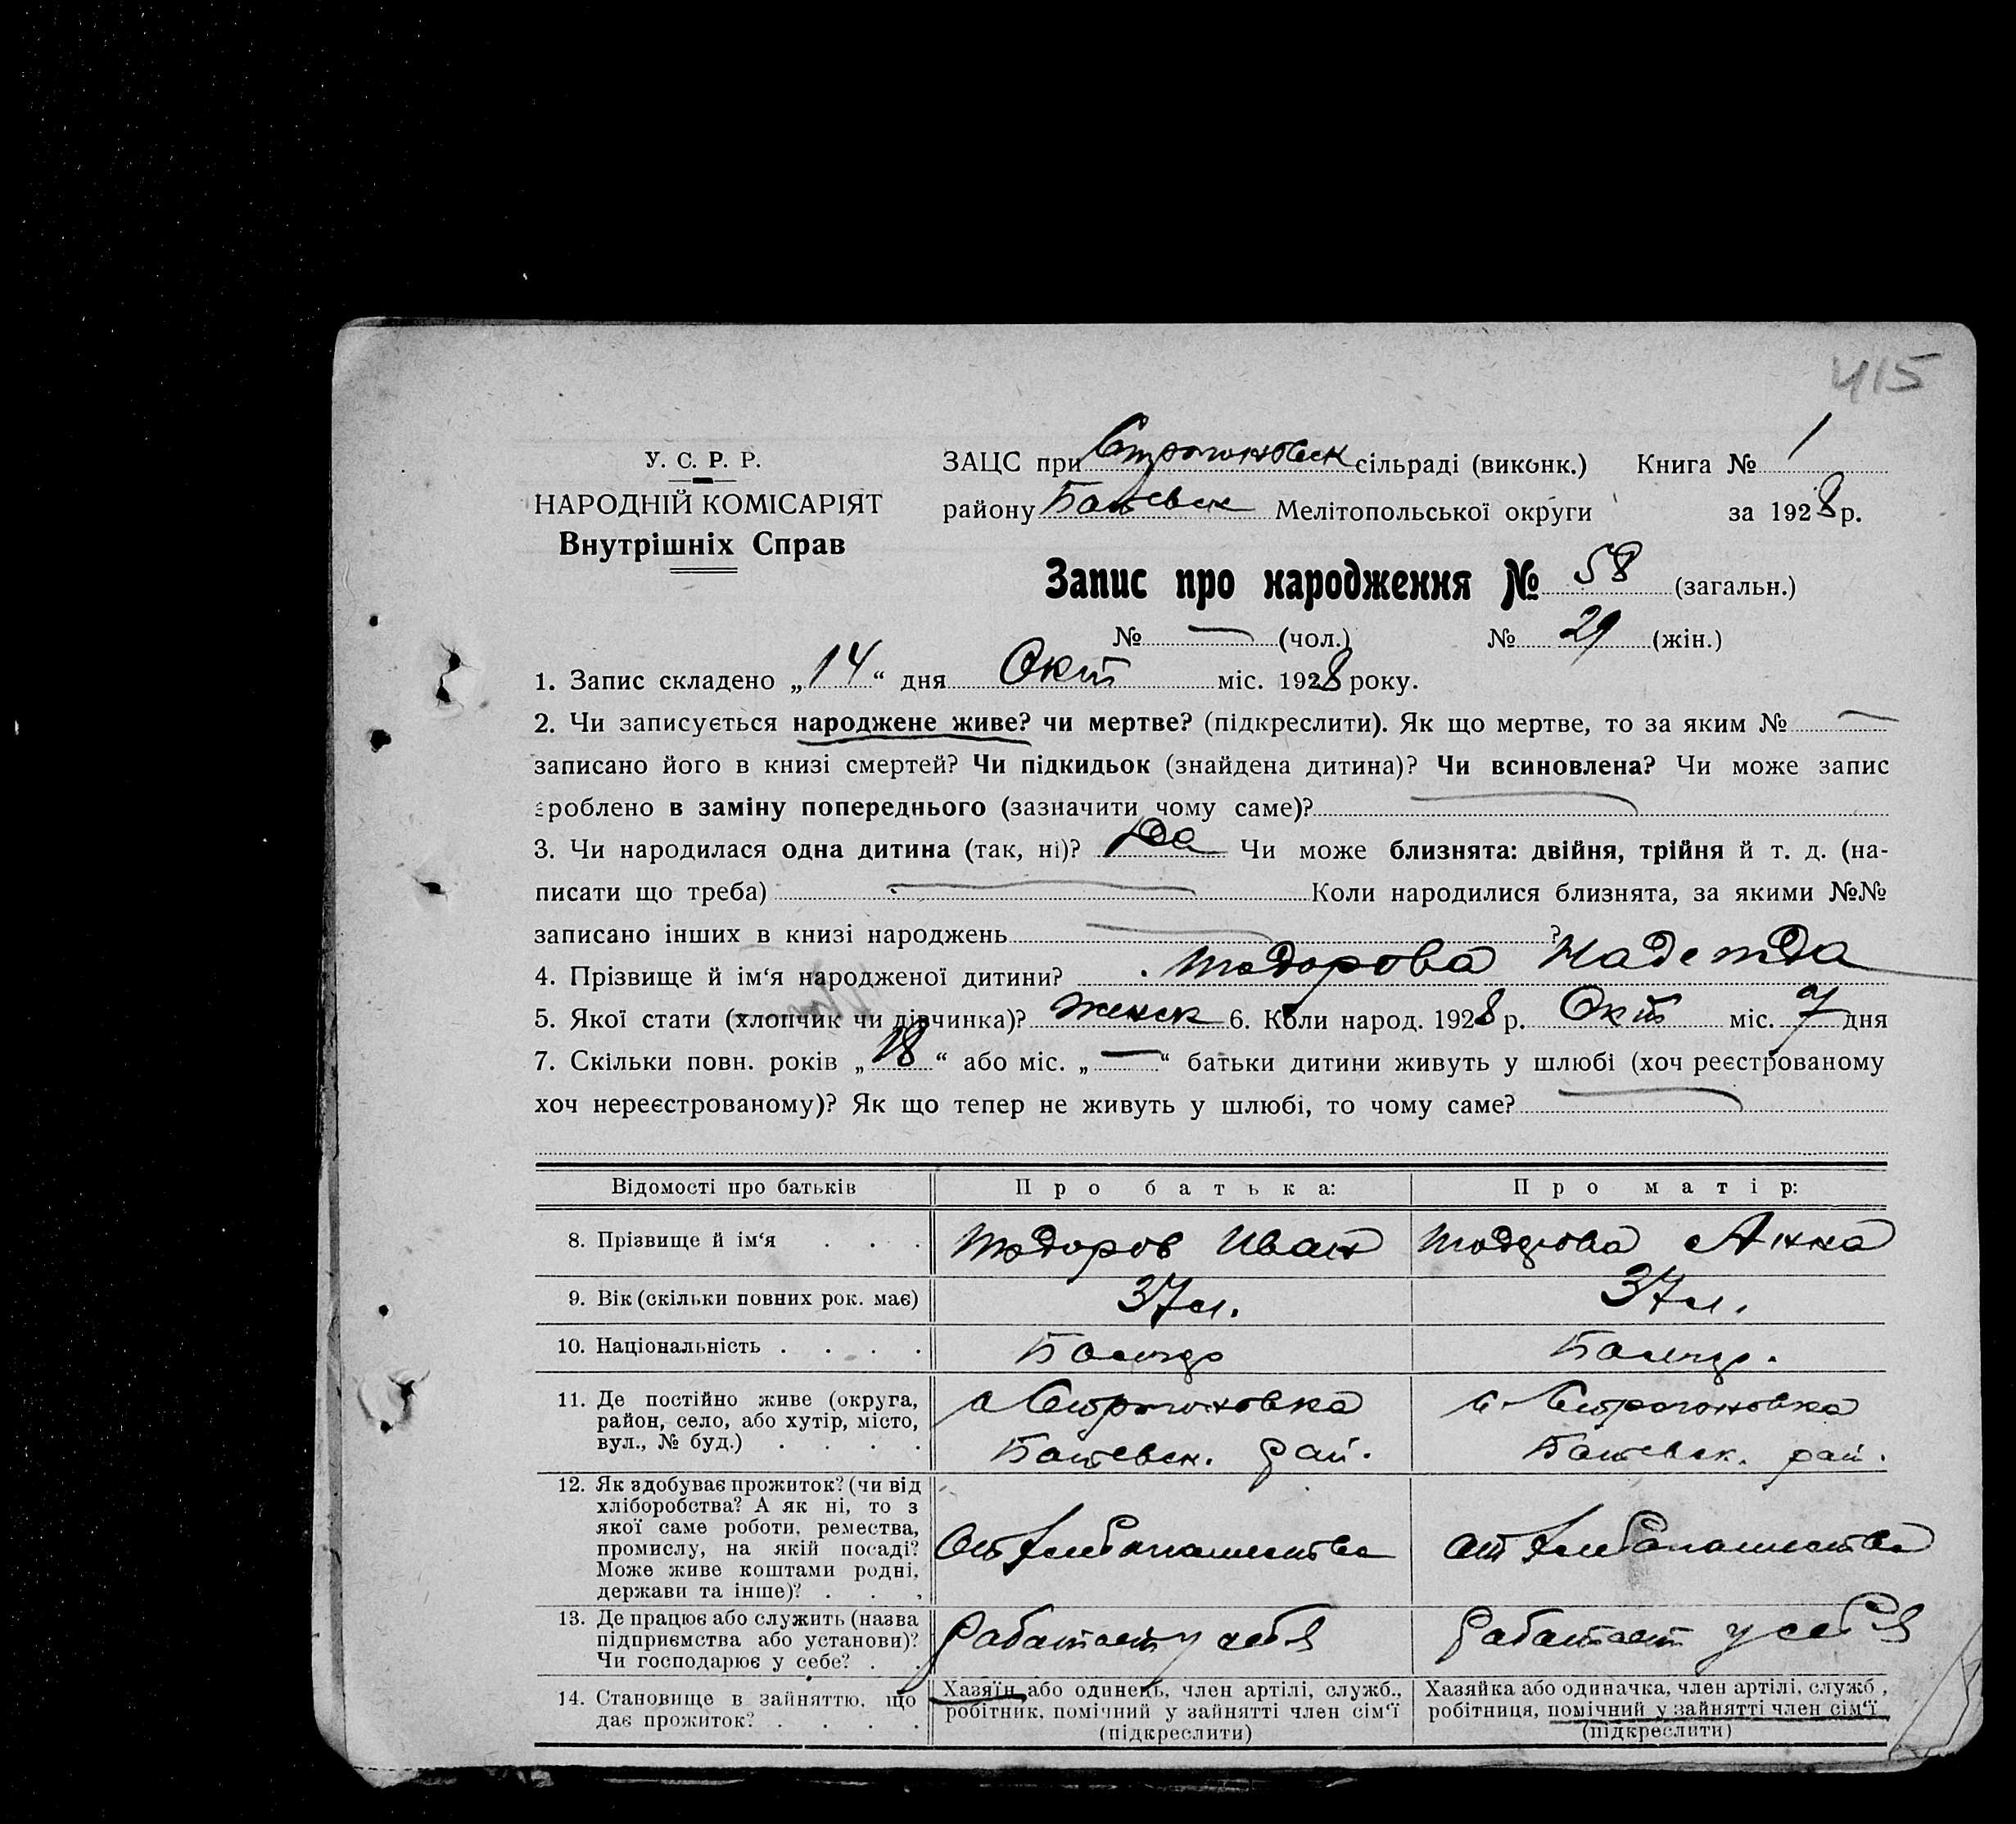 415
У. С. Р. Р.
НАРОДНІЙ КОМІСАРІЯТ
Внутрішніх Справ
ЗАЦС при Строгоновск сільраді (виконк.) Книга № 1
району Ботевск Мелітопольської округи за 1928 р.
Запис про народження № 58 (загальн.)
№ — (чол.) № 29 (жін.)
1. Запис складено „14“ дня Окт міс. 1928 року.
2. Чи записується народжене живе? чи мертве? (підкреслити). Як що мертве, то за яким № —
записано його в книзі смертей? Чи підкидьок (знайдена дитина)? Чи всиновлена? Чи може запис
зроблено в заміну попереднього (зазначити чому саме)? —
3. Чи народилася одна дитина (так, ні)? Да Чи може близнята: двійня, трійня й т. д. (на-
писати що треба) — Коли народилися близнята, за якими №№
записано інших в книзі народжень — ?
4. Прізвище й ім‘я народженої дитини? Тодорова Надежда
5. Якої стати (хлопчик чи дівчинка)? женск 6. Коли народ. 1928 р. Окт міс. 7 дня
7. Скільки повн. років „18“ або міс. „—“ батьки дитини живуть у шлюбі (хоч реєстрованому
хоч нереєстрованому)? Як що тепер не живуть у шлюбі, то чому саме? —
Відомості про батьків Про батька: Про матір:
8. Прізвище й ім‘я . . . Тодоров Иван Тодорова Анна
9. Вік (скільки повних рок. має) 37 л. 37 л.
10. Національність . . . . Болгар Болгар.
11. Де постійно живе (округа, район, село, або хутір, місто, вул., № буд.) . . . .
с Строгоновка
Ботевск. рай.
с. Строгоновка
Ботевск. рай.
12. Як здобуває прожиток? (чи від хліборобства? А як ні, то з якої саме роботи, ремества, промислу, на якій посаді? Може живе коштами родні, держави та інше)? . . .
От хлебопашества
От хлебопашества
13. Де працює або служить (назва підприємства або установи)? Чи господарює у себе? . .
работает у себя
работает у себя
14. Становище в зайняттю, що дає прожиток? . . . .
Хазяїн або одинець, член артілі, служб.,
робітник, помічний у зайнятті член сім‘ї
(підкреслити)
Хазяйка або одиначка, член артілі, служб ,
робітниця, помічний у зайнятті член сім‘ї
(підкреслити)